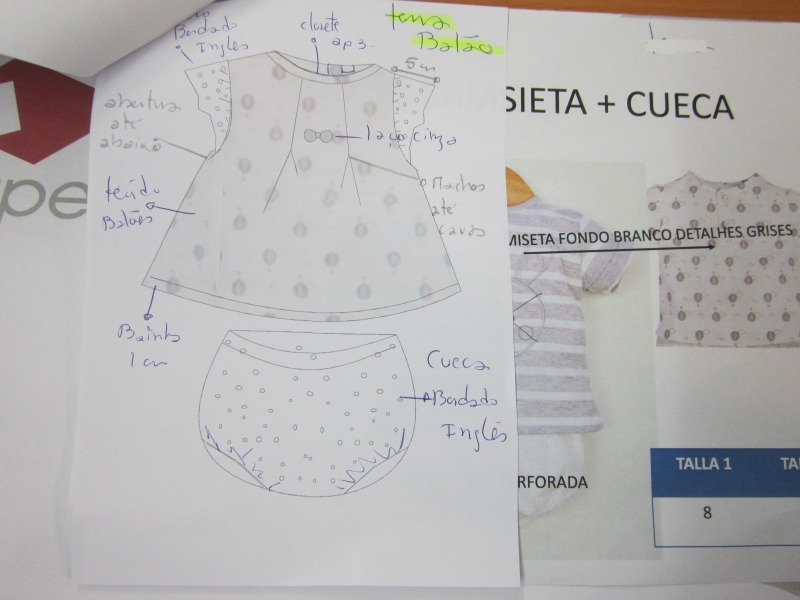 Bordado
Inglês
clorete
ap 3.
tema
Balão
5 cm
abertura
até
abaixo
laço cinza
tecido
Balões
Machos
até
cavas
Bainha
1 cm
Cueca
Bordado
Inglês
pe
SIETA + CUECA
MISETA FONDO BRANCO DETALHES GRISES
RFORADA
TALLA 1
TA
8